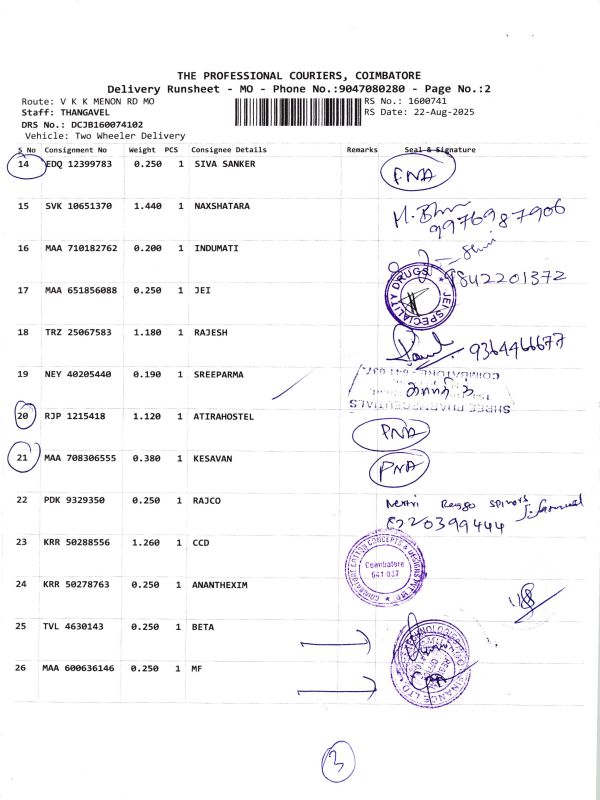 THE PROFESSIONAL COURIERS, COIMBATORE
Delivery Runsheet - MO - Phone No.:9047080280 - Page No.:2
Route: V K K MENON RD MO
RS No.: 1600741
Staff: THANGAVEL
RS Date: 22-Aug-2025
DRS No.: DCJB160074102
Vehicle: Two Wheeler Delivery
S No Consignment No Weight PCS Consignee Details Remarks Seal & Signature
14 EDQ 12399783 0.250 1 SIVA SANKER
15 SVK 10651370 1.440 1 NAXSHATARA
9976987906
16 MAA 710182762 0.200 1 INDUMATI
9842201372
17 MAA 651856088 0.250 1 JEI
JEI SPECIALITY DRUGS
18 TRZ 25067583 1.180 1 RAJESH 9364466677
19 NEY 40205440 0.190 1 SREEPARMA
COIMBATORE - 641 037
SHREE PHARMACEUTICALS
20 RJP 1215418 1.120 1 ATIRAHOSTEL PNA
21 MAA 708306555 0.380 1 KESAVAN PNA
22 PDK 9329350 0.250 1 RAJCO
8220399444
23 KRR 50288556 1.260 1 CCD
Coimbatore
641 037
24 KRR 50278763 0.250 1 ANANTHEXIM
25 TVL 4630143 0.250 1 BETA
26 MAA 600636146 0.250 1 MF
3